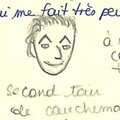 ui me fait très peu
à
second tour
de cauchema